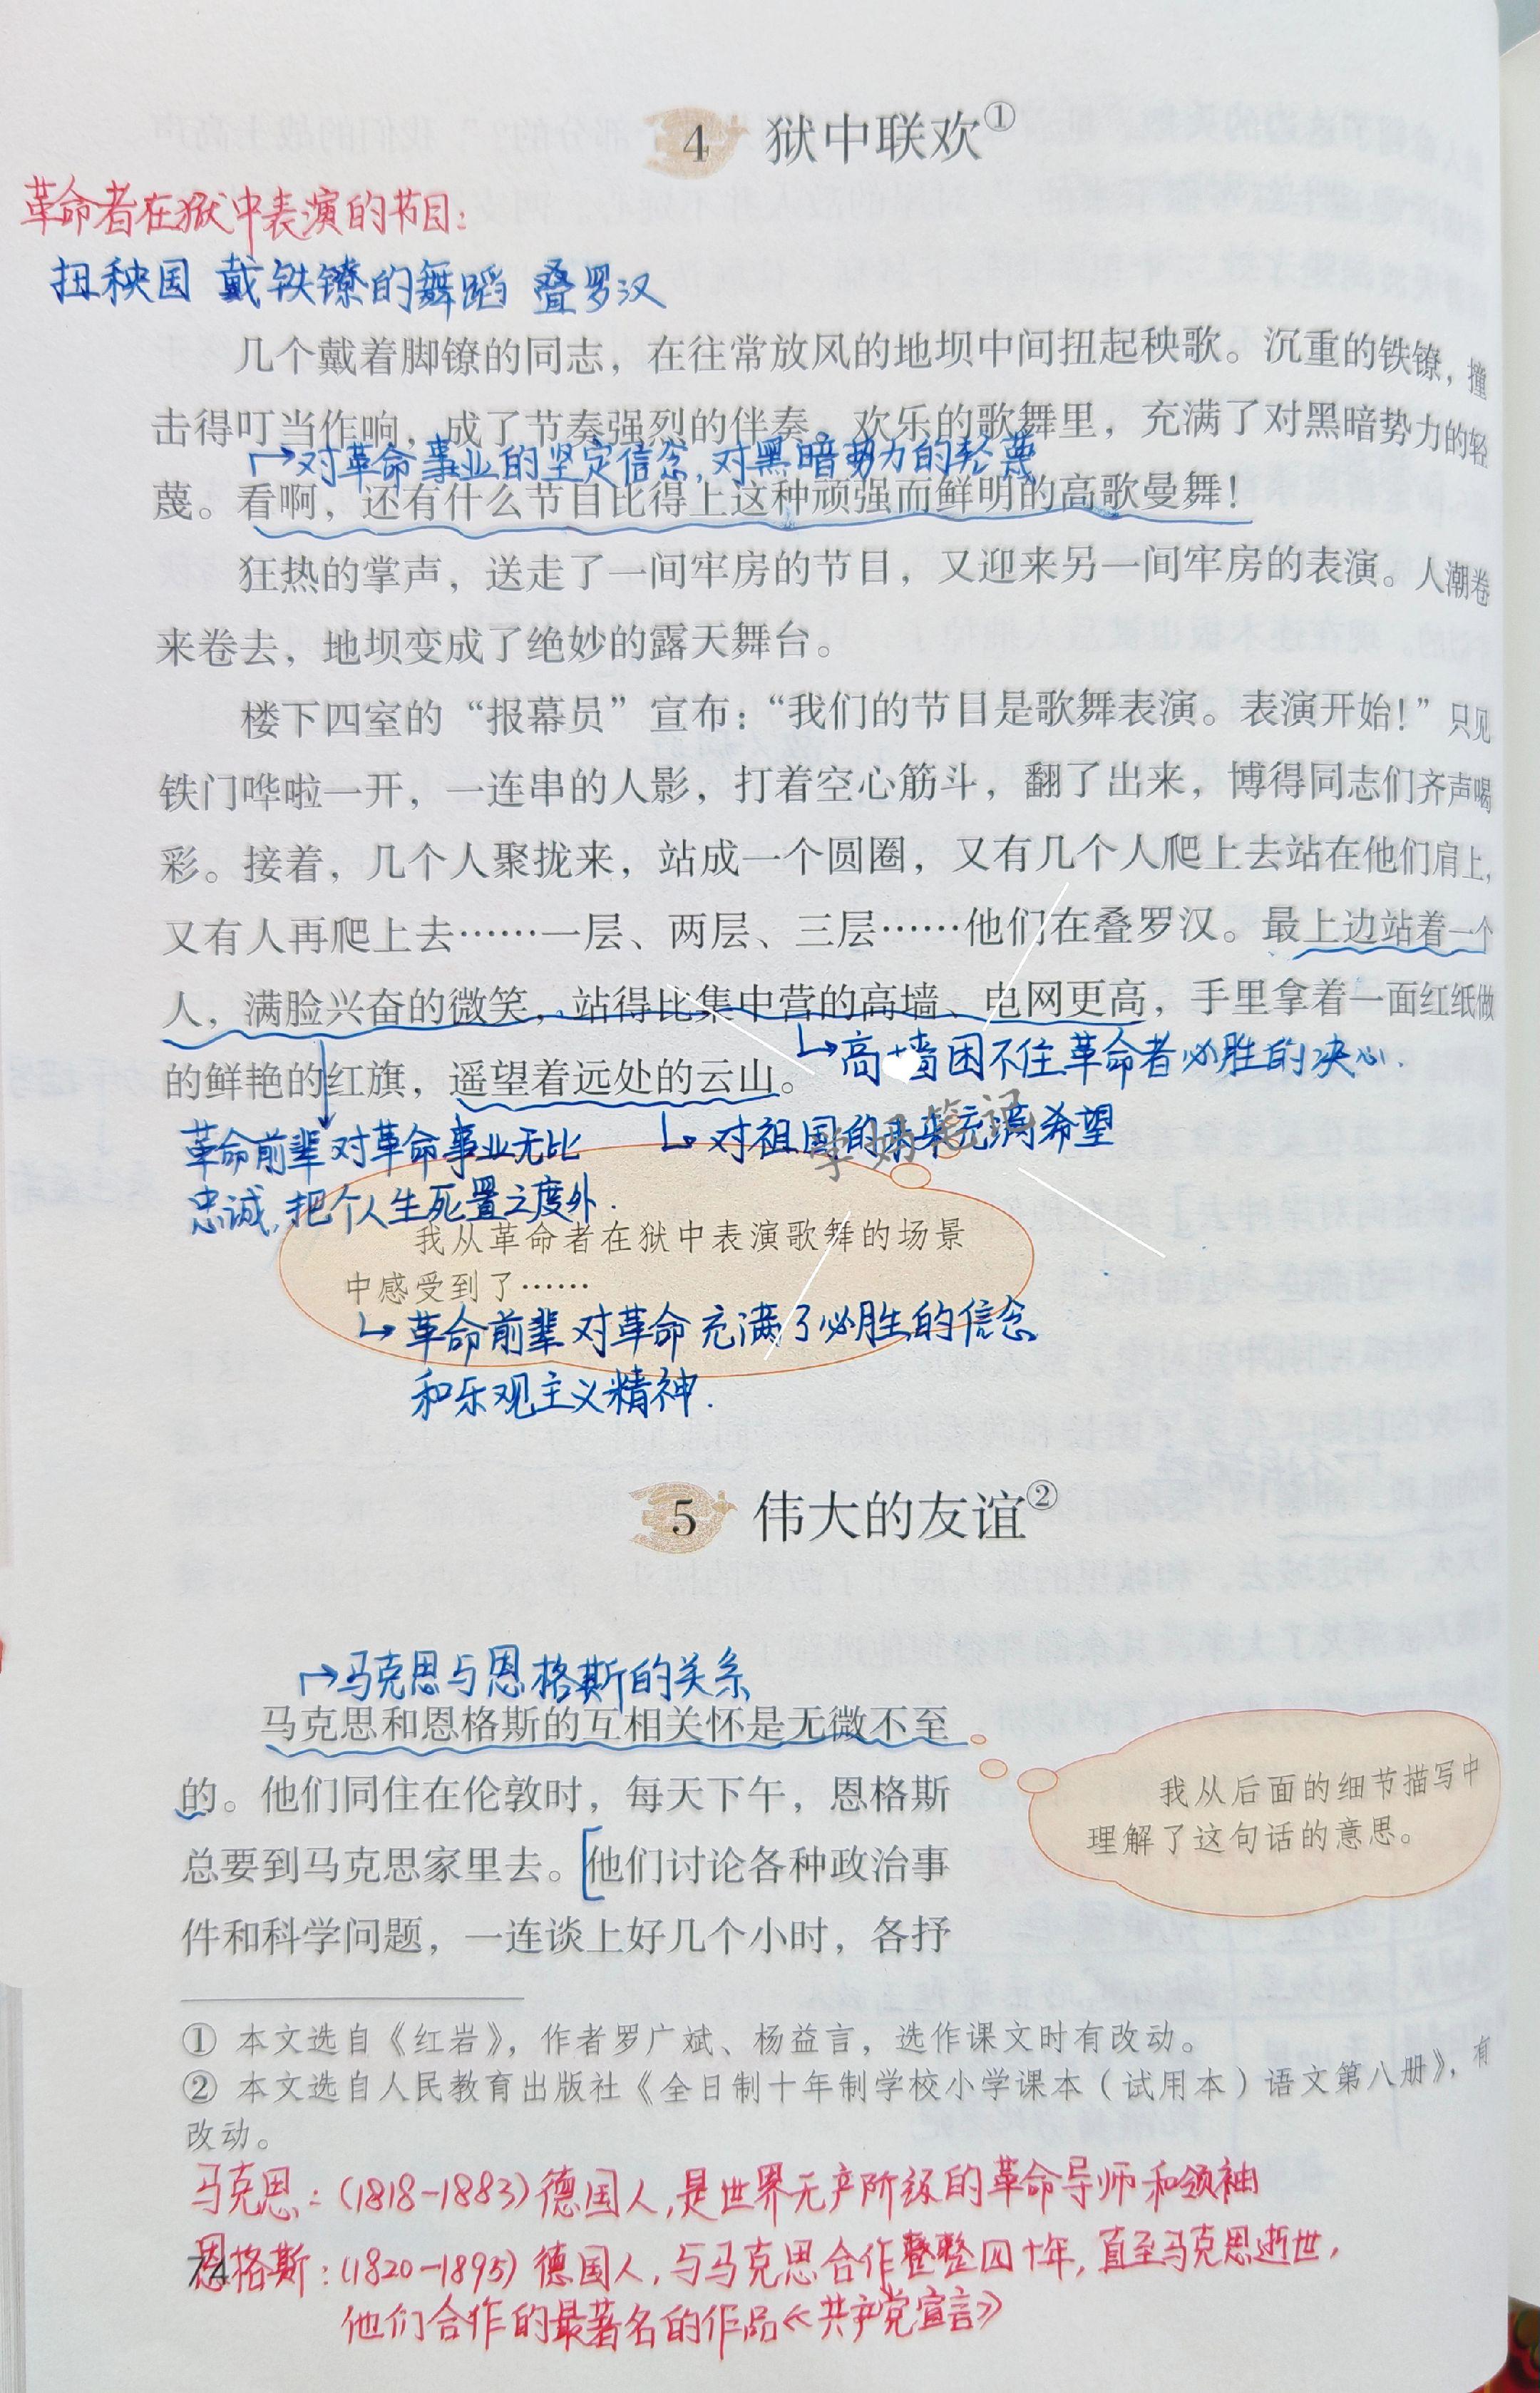 4 狱中联欢①
革命者在狱中表演的节目：
扭秧国 戴铁镣的舞蹈 叠罗汉
几个戴着脚镣的同志，在往常放风的地坝中间扭起秧歌。沉重的铁镣，撞
击得叮当作响，成了节奏强烈的伴奏。欢乐的歌舞里，充满了对黑暗势力的轻
对革命事业的坚定信念，对黑暗势力的轻蔑
蔑。看啊，还有什么节目比得上这种顽强而鲜明的高歌曼舞！
狂热的掌声，送走了一间牢房的节目，又迎来另一间牢房的表演。人潮卷
来卷去，地坝变成了绝妙的露天舞台。
楼下四室的“报幕员”宣布：“我们的节目是歌舞表演。表演开始！”只见
铁门哗啦一开，一连串的人影，打着空心筋斗，翻了出来，博得同志们齐声喝
彩。接着，几个人聚拢来，站成一个圆圈，又有几个人爬上去站在他们肩上，
又有人再爬上去……一层、两层、三层……他们在叠罗汉。最上边站着一个
人，满脸兴奋的微笑，站得比集中营的高墙、电网更高，手里拿着一面红纸做
高墙困不住革命者必胜的决心.
的鲜艳的红旗，遥望着远处的云山。
对祖国的未来充满希望
学妈笔记
革命前辈对革命事业无比
忠诚，把个人生死置之度外.
我从革命者在狱中表演歌舞的场景
中感受到了……
革命前辈对革命充满了必胜的信念
和乐观主义精神.
5 伟大的友谊②
马克思与恩格斯的关系
马克思和恩格斯的互相关怀是无微不至
的。他们同住在伦敦时，每天下午，恩格斯
总要到马克思家里去。[他们讨论各种政治事
件和科学问题，一连谈上好几个小时，各抒
我从后面的细节描写中
理解了这句话的意思。
① 本文选自《红岩》，作者罗广斌、杨益言，选作课文时有改动。
② 本文选自人民教育出版社《全日制十年制学校小学课本（试用本）语文第八册》，有
改动。
马克思：(1818-1883) 德国人，是世界无产阶级的革命导师和领袖
74
恩格斯：(1820-1895) 德国人，与马克思合作整整四十年，直至马克思逝世，
他们合作的最著名的作品《共产党宣言》